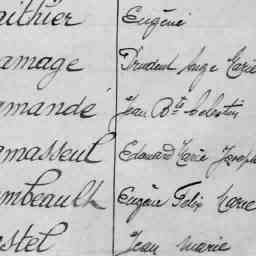 aithier Eugène
amage Prudent Ange Marie
amandé Jean Bte Celestin
amasseul Edouard Marie Joseph
mbeault Eugène Felix Marie
astel Jean marie